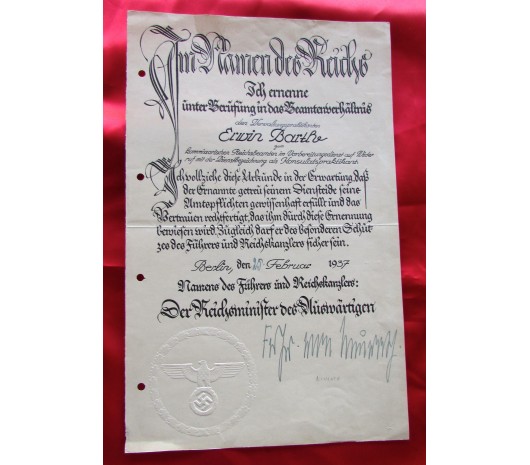 Im Namen des Reichs
Ich ernenne
unter Berufung in das Beamtenverhältnis
den
Erwin Barth
zum
kommissarischen Reichsbeamten im Vorbereitungsdienst auf Wider
ruf mit der Dienstbezeichnung als
Ich vollziehe diese Urkunde in der Erwartung, daß
der Ernannte getreu seinem Diensteide seine
Amtspflichten gewissenhaft erfüllt und das
Vertrauen rechtfertigt, das ihm durch diese Ernennung
bewiesen wird. Zugleich darf er des besonderen Schut=
zes des Führers und Reichskanzlers sicher sein.
Berlin, den 20 Februar 1937
Namens des Führers und Reichskanzlers:
Der Reichsminister des Auswärtigen
Frhr. von Neurath.